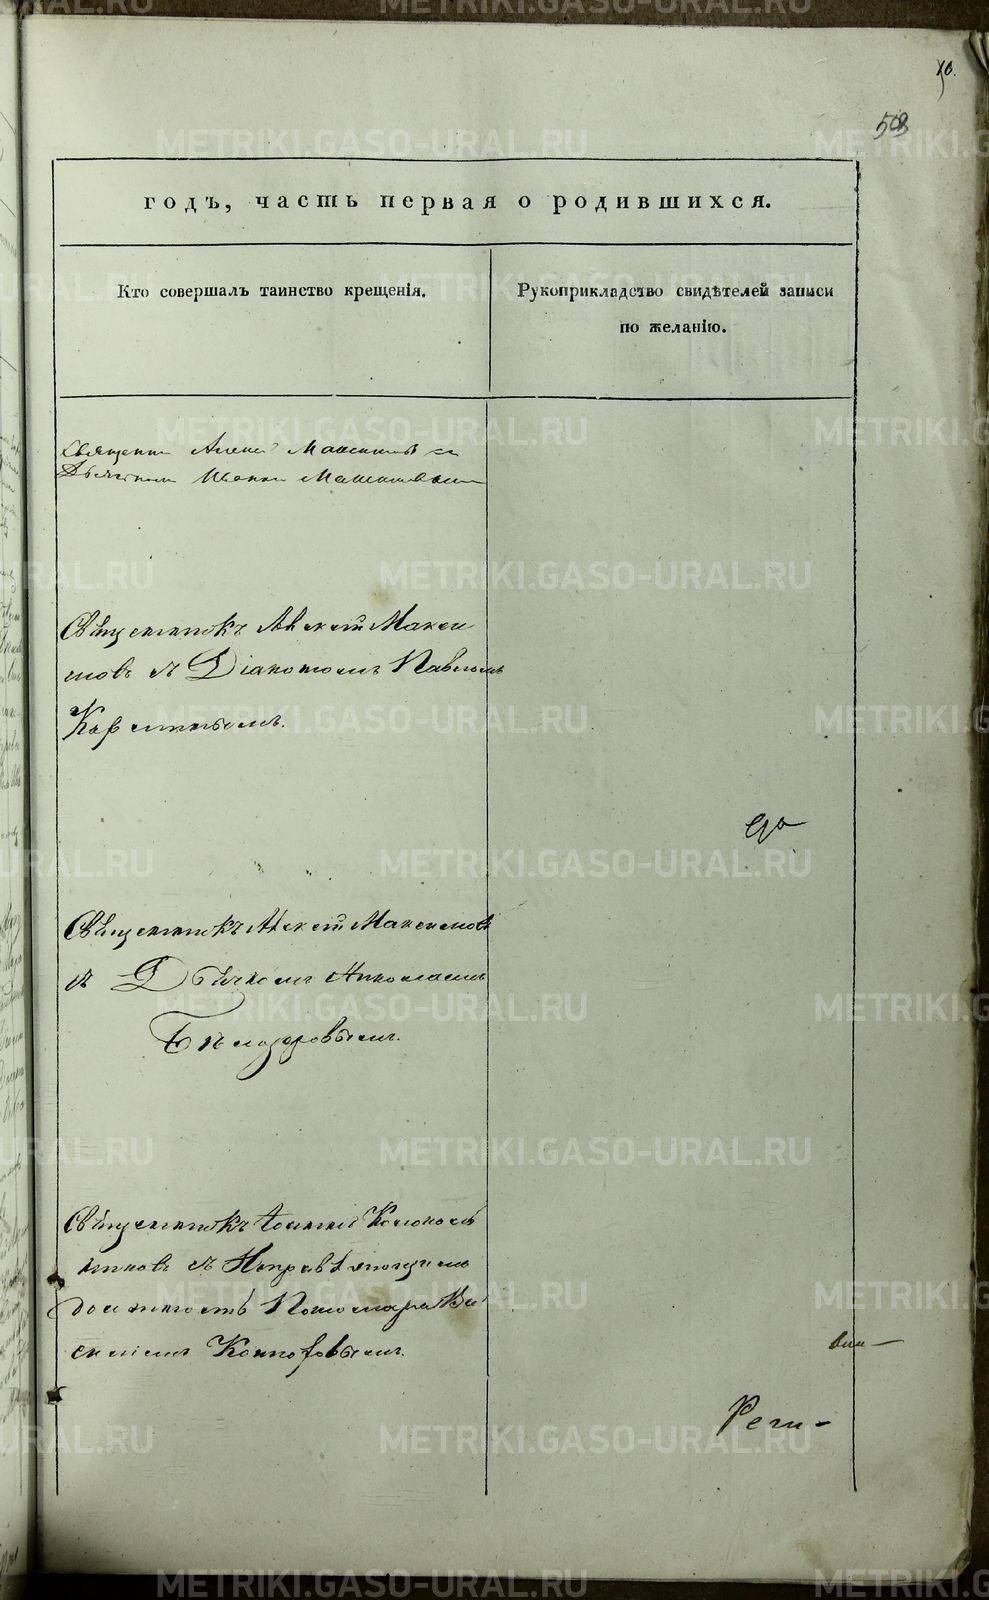 10.
508
годъ, часть первая о родившихся.
Кто совершалъ таинство крещенія.
Рукоприкладство свидѣтелей записи
по желанію.
Священникъ Алексій Максимовъ съ
Дьячкомъ Иваномъ Максимовымъ
Священникъ Алексій Макси
мовъ съ Діакономъ Павломъ
Священникъ Алексій Максимовъ
съ Дьячкомъ Николаемъ
Бѣлозеровымъ.
Священникъ Іоаннъ
съ Исправляющимъ
должность Пономаря Ва
силіемъ
METRIKI.GASO-URAL.RU